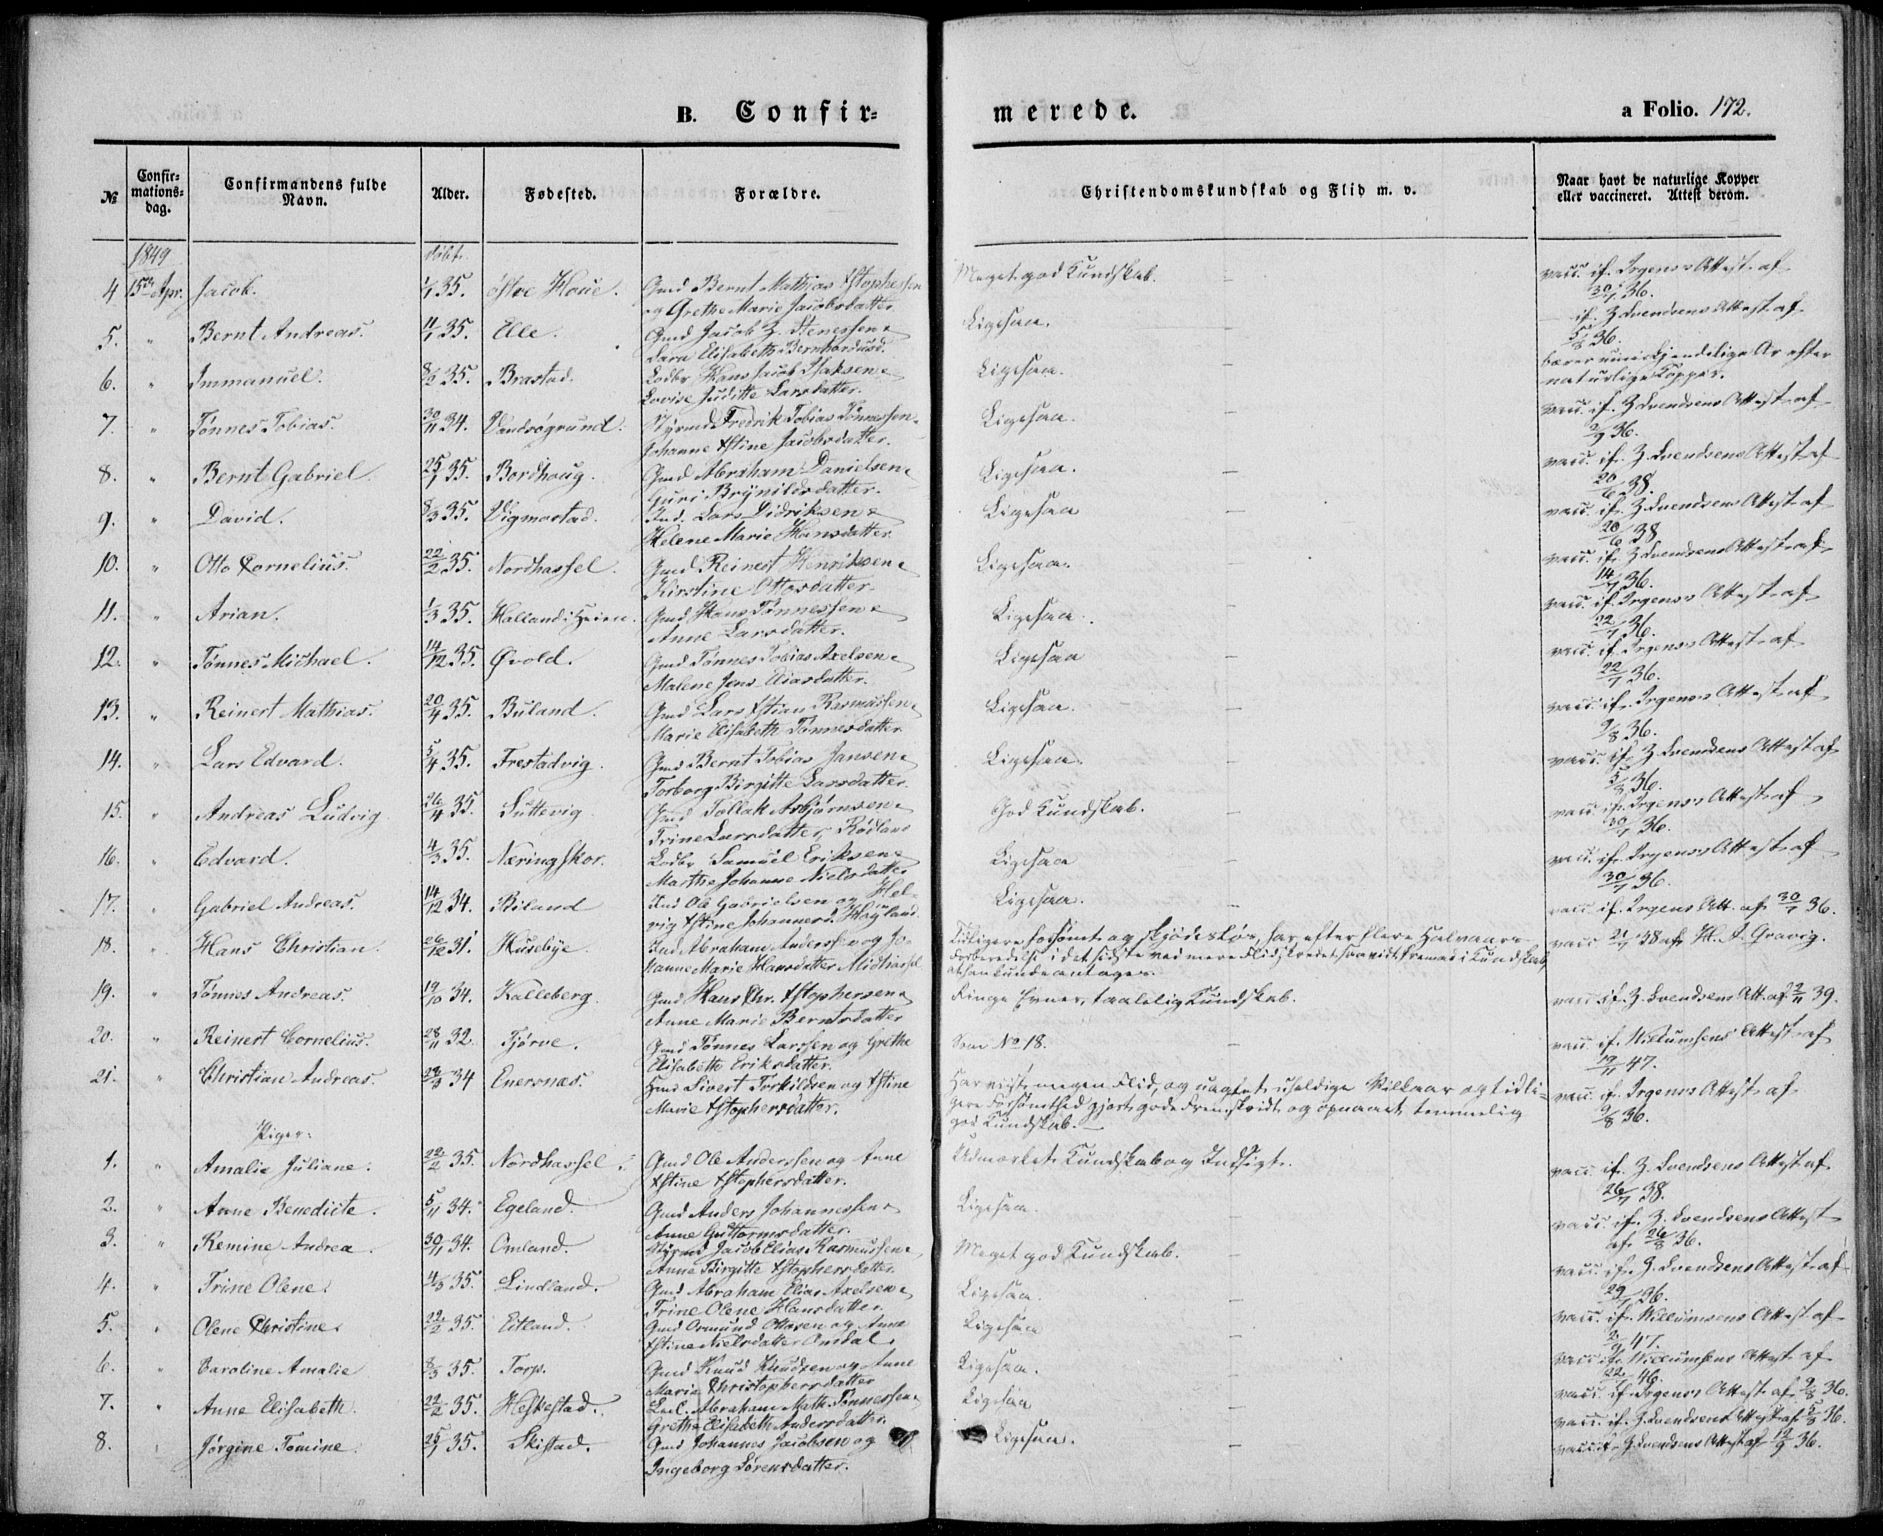 B. Confir= merede. a Folio. 172.
№ Confir=mations=dag. Confirmandens fulde Navn. Alder. Fødested. Forældre. Christendomskundskab og Flid m. v. Naar havt de naturlige Kopper eller vaccineret. Attest derom.
1849 døbt
4 15de Apr. Jacob. 35. Houe. Gmd Bernt Mathias Xstophersen og Grethe Marie Jacobsdatter Meget god Kundskab. vacc. if. Irgens's Attest af 30/7 36.
5. " Bernt Andreas. 35. Elle. Gmd Jacob Z. Stenersen & Sara Elisabeth Bernhardsd. Ligesaa. if. Z Svendsens Attest af 5/8 36.
6. " Immanuel. 35. Brastad. Hans Jacob Isaksen & Lovise Juditte Larsdatter. Ligesaa. bærer umiskjendelige Ar efter naturlige Kopper.
7. " Tønnes Tobias. 30/11 34. Vandsøgrund. Styrmd Fredrik Tobias Tønnessen & Johanne Xstine Jacobsdatter. Ligesaa. vacc. if. Z Svendsens Attest af 2/9 36.
8. " Bernt Gabriel. 25/1 35. Bordhoug. Gmd Abraham Danielsen & Guri Brynildsdatter. Ligesaa. vacc. if. Z. Svendsens Attest af 20/6 38.
9. " David. 8/3 35. Vigmostad. Ind. Lars Didriksen & Helene Marie Hansdatter. Ligesaa vacc. if. Z. Svendsens Attest af 20/6 38
10. " Otto Cornelius. 22/2 35. Nordhassel. Gmd Reinert Henriksen & Kirstine Ottosdatter. Ligesaa. vacc. if. Z Svendsens Attest af 14/7 36.
11. " Arian. 1/3 35. Halland i Heien. Gmd Hans Tønnessen & Anne Larsdatter. Ligesaa. vacc. if. Irgens's Attest af 22/7 36.
12. " Tønnes Michael. 14/12 35. Øvold. Gmd Tønnes Tobias Axelsen & Malene Jens Eliasdatter. Ligesaa vacc. if. Irgens's Attest af 22/7 36.
13. " Reinert Mathias. 20/4 35. Buland. Gmd Lars Xstian Rasmussen & Marie Elisabeth Tønnesdatter Ligesaa. vacc. if. Irgens's Attest af 9/8 36.
14. " Lars Edvard. 5/4 35. Frestadvig. Gmd Bernt Tobias Jansen & Torborg Birgitte Larsdatter. Ligesaa. vacc. if. Z. Svendsens Attest af 5/8 36.
15. " Andreas Ludvig 26/4 35. Luttevig. Gmd Tollak Asbjørnsen & Trine Larsdatter, Rødland God Kundskab. vacc. if. Irgens's Attest af 30/7 36.
16. " Edvard. 4/3 35. Næringskor. Samuel Eriksen & Marthe Johanne Nielsdatter Ligesaa vacc. if. Irgens's Attest af 30/7 36.
17. " Gabriel Andreas. 14/12 34. Biland Ind Ole Gabrielsen og Helvig Xstine Johannesd. Høyland. Ligesaa. vacc. if. Irgens Att. af 30/7 36.
18. " Hans Christian. 26/12 31. Huseby. Ind. Abraham Andersen og Johanne Marie Hansdatter Midthassel Tidligere forsømt og skjødesløs, har efter flere Halvaars Forberedelse i det sidste ved mere Flid skredet saavidt fremad i Kundskab, at han kunde antages. vacc 21/7 38 af H. A. Gravig.
19. " Tønnes Andreas. 19/10 34. Kalleberg. Gmd Hans Chr. Xstophersen & Anne Marie Berntsdatter Ringe Evner, taalelig Kundskab. vacc if. Z. Svendsens Att. af 2/11 39.
20. " Reinert Cornelius. 28/11 32. Tjørve. Gmd Tønnes Larssen og Grethe Elisabeth Eriksdatter. Som No 18. vacc. if. Willumsens Attest af 19/11 47.
21. " Christian Andreas. 34 Enersnæs. Sivert Torkildsen og Xstine Marie Xstophersdatter. Har viist megen Flid, og uagtet uheldige Vilkaar og tidligere Forsømthed gjort gode Fremskridt og opnaaet temmelig god Kundskab. vacc. if. Irgens's Attest af 9/8 36.
Piger:
1. " Amalie Juliane. 22/2 35. Nordhassel. Gmd Ole Anderssen og Anne Xstine Xstophersdatter. Udmærket Kundskab og Indsigt. vacc. if. Z. Svendsens Attest af 26/7 38.
2. " Anne Benedicte. 5/11 34. Egeland. Gmd Anders Johannessen & Anne Guttormsdatter. Ligesaa. vacc. if. Z. Svendsens Attest af 26/8 36.
3. " Remine Andrea. 30/11 34. Omland. Styrmd Jacob Elias Rasmussen & Anne Birgitte Xstophersdatter. Meget god Kundskab. vacc. if. Z. Svendsens Attest af 29/7 36.
4. " Trine Olene. 4/3 35. Lindland. Gmd Abraham Elias Axelsen & Trine Olene Hansdatter. Ligesaa. vacc. if. Willumsens Attest af 47.
5. " Olene Christine. 22/2 35. Eitland. Gmd Osmund Ottosen og Anne Xstine Nielsdatter Omdal. Ligesaa vacc. if. Willumsens Attest af 46.
6. " Caroline Amalie 8/3 35. Torp. Gmd Knud Knudsen og Anne Marie Christophersdatter Ligesaa. vacc. if. Irgens's Attest af 9/8 36.
7. " Anne Elisabeth. 22/2 35. Heskestad. Abraham Math. Tønnessen & Grethe Elisabeth Andersdatter. Ligesaa vacc. if. Z. Svendsens Attest af 5/8 36.
8. " Jørgine Tomine. 25/1 35. Skistad. Gmd Johannes Jacobsen og Ingeborg Sørensdatter. Ligesaa. vacc. if. Z. Svendsens Attest af 12/9 36.